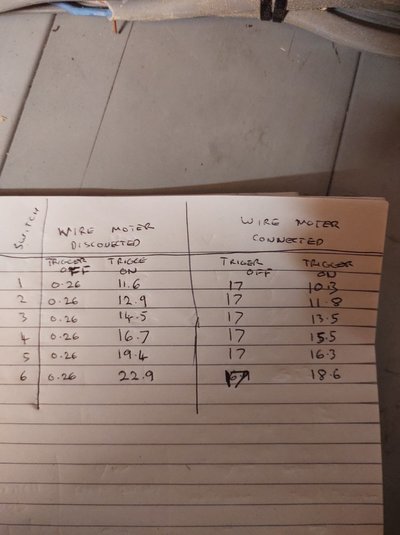 SWITCH
WIRE MOTER DISCOUECTED WIRE MOTER CONNECTED
TRIGGER OFF TRIGGE ON TRIGER OFF TRIGGER ON
1 0.26 11.6 17 10.3
2 0.26 12.9 17 11.8
3 0.26 14.5 17 13.5
4 0.26 16.7 17 15.5
5 0.26 19.4 17 16.3
6 0.26 22.9 17 18.6